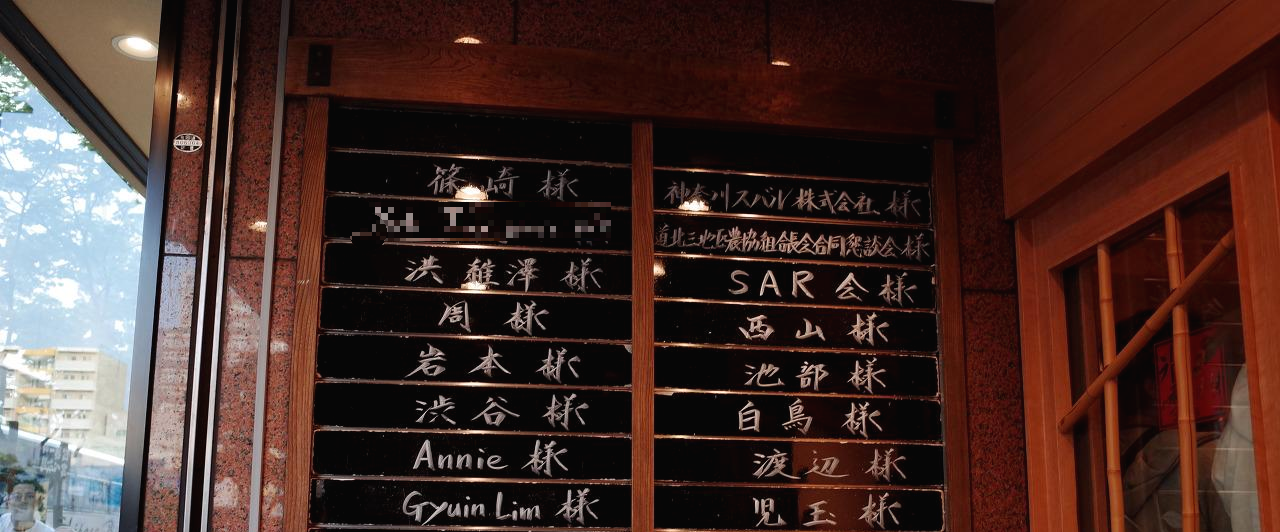 篠崎 様
洪 雅澤 様
周 様
岩本 様
渋谷 様
Annie 様
Gyuin Lim 様
神奈川スバル株式会社 様
道北三地区農協組合長会合同懇談会 様
SAR会 様
西山 様
池部 様
白鳥 様
渡辺 様
児玉 様